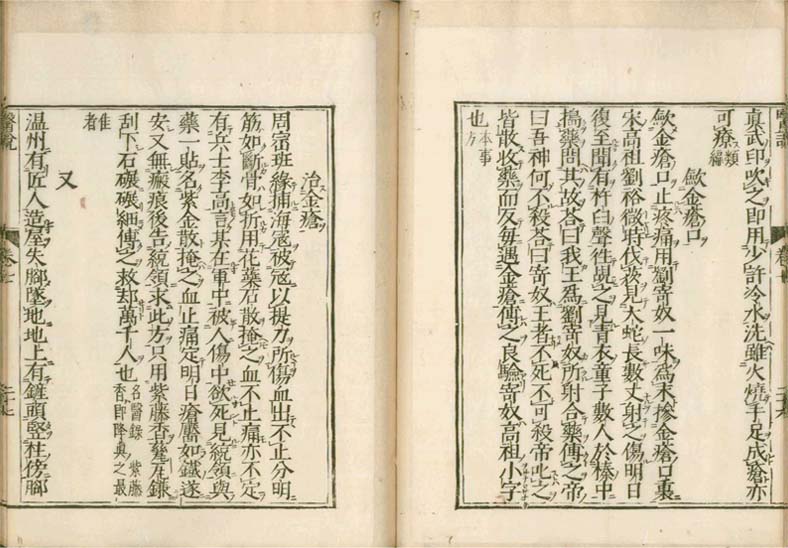 真武印吹之即用少許冷水洗雖火燒手足成瘡亦
可療類編
歛金瘡口
歛金瘡口止疼痛用劉寄奴一味爲末摻金瘡口裏
宋高祖劉裕微時伐荻見大蛇長數丈射之傷明日
復至聞有杵臼聲徃覘之見青衣童子數人於榛中
搗藥問其故荅曰我王爲劉寄奴所射合藥傅之帝
曰吾神何不殺荅曰寄奴王者不死不可殺帝叱之
皆散收藥而反毎遇金瘡傅之良驗寄奴高祖小字
也本事方
醫說
卷七
二十六
治金瘡
周崈班緣捕海冦被冦以提刀所傷血出不止分明
筋如斷骨如折用花藥石散掩之血不止痛亦不定
有兵士李高言某在軍中被人傷中欲死見統領與
藥一貼名紫金散掩之血止痛定明日瘡靨如鐵遂
安又無瘢痕後告統領求此方只用紫藤香瓷瓦鎌
刮下石碾碾細傅之救却萬千人也名醫錄 紫藤香即降眞之最
佳者
又
温州有匠人造屋失脚墜地地上有鑵頭竪柱傍脚
醫說
卷七
二十七